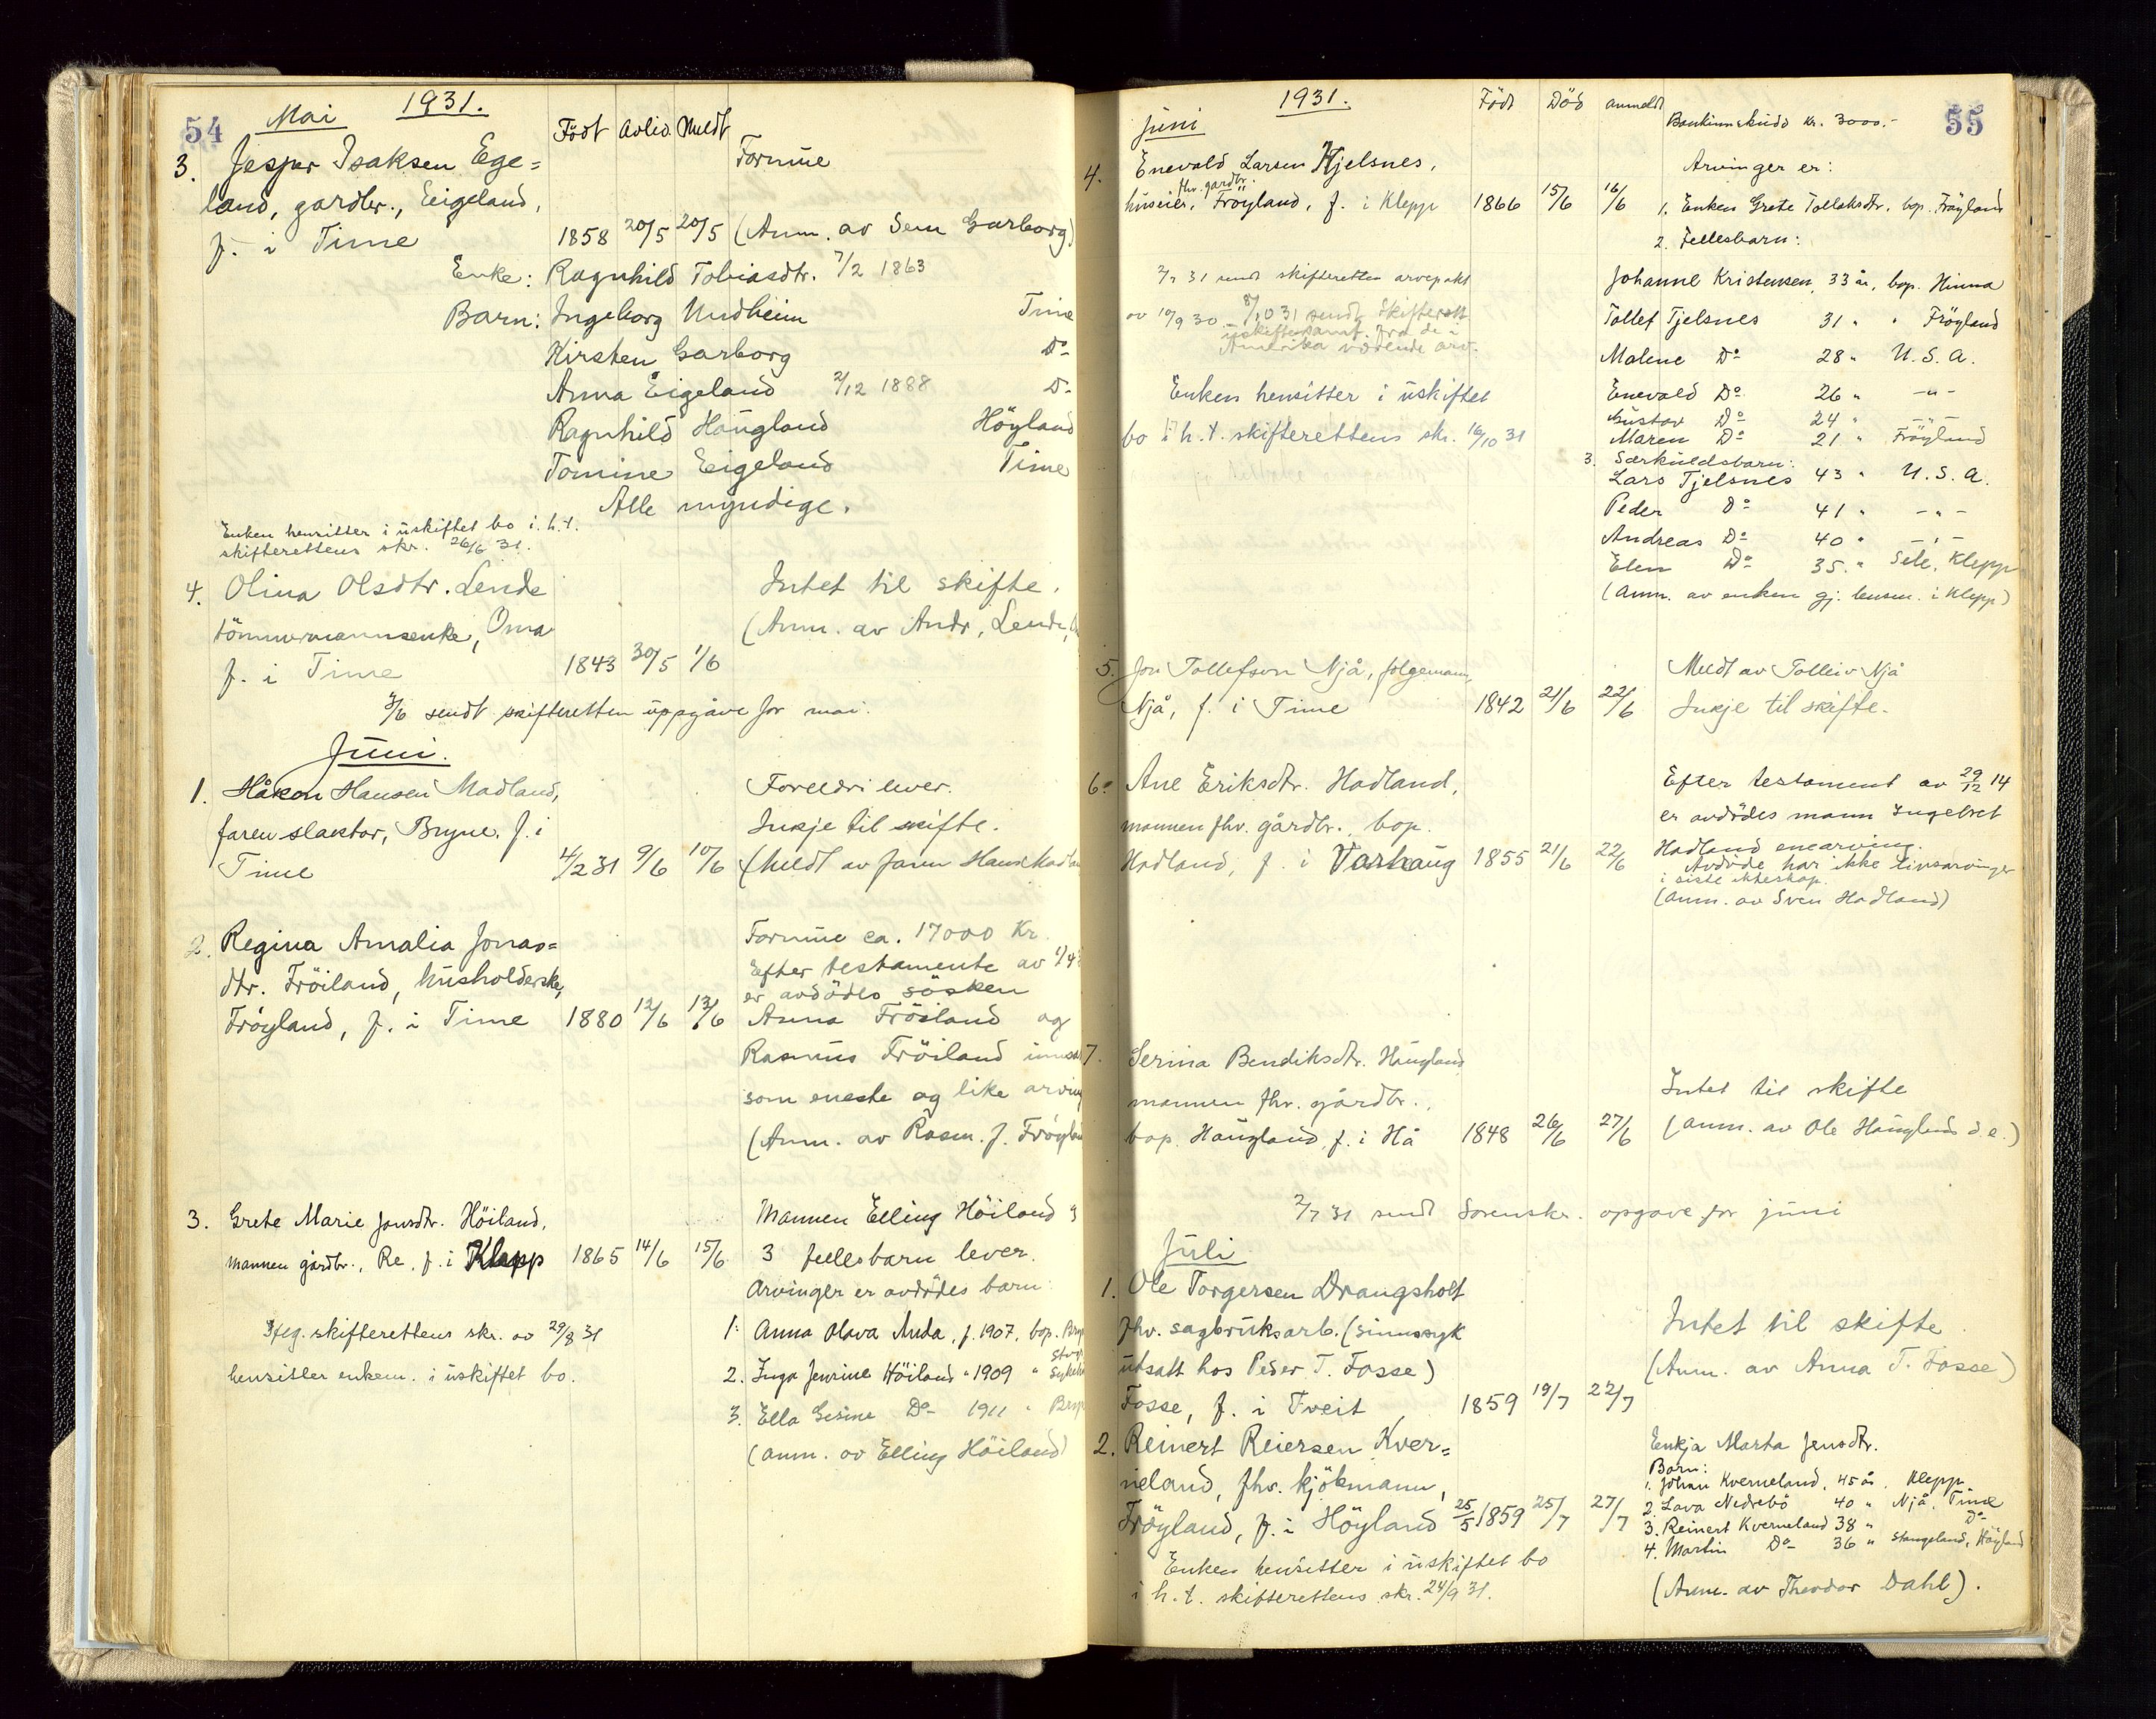 54 Mai 1931.
Født Avlid. Meldt
3. Jesper Isaksen Ege= Formue
land, gardbr., Eigeland,
f. i Time 1858 20/5 20/5 (Anm. av Sem Garborg)
Enke: Ragnhild Tobiasdtr. 7/2 1863
Barn: Ingeborg Undheim Time
Kirsten Garborg Do
Anna Eigeland 2/12 1888 D-
Ragnhild Haugland Höyland
Tomine Eigeland Time
Alle myndige.
Enken hensitter i uskiftet bo i. h. t.
skifterettens skr. 26/6 31.
4. Olina Olsdtr. Lende Intet til skifte.
tömmermannsenke, Oma (Anm. av Andr. Lende,
f. i Time 1843 30/5 1/6
3/6 sendt skifteretten uppgåve for mai.
Juni.
1. Håkon Hansen Madland, Foreldri lever.
faren slaktar, Bryne. f. i Inkje til skifte.
Time 4/2 31 9/6 10/6 (Meldt av faren Hans Madla
2. Regina Amalia Jonas= Formue ca. 17000 Kr.
dtr. Fröiland, husholderske, Efter testamente av
er avdödes sösken
Fröyland, f. i Time 1880 12/6 13/6 Anna Fröiland og
Rasmus Fröiland
som eneste og like arving
(Anm. av Rasm. J. Fröylan
3. Grete Marie Jonsdtr. Höiland, Mannen Elling Höiland og
mannen gårdbr., Re, f. i Klepp 1865 14/6 15/6 3 fellesbarn lever.
Arvinger er avdödes barn:
Ifeg. skifterettens skr. av 29/8 31 1. Anna Olava Anda, f. 1907, bop. Bry
hensitter enkem. i uskiftet bo. 2. Inga Jensine Höiland " 1909 " Syke
3. Ella Gesine Do 1911 " Bry
(anm. av Elling Höiland)
55 1931. Födt Död anmeldt
juni Bankinnskudd kr. 3000.-
4. Enevald Larsen Tjelsnes, Arvinger er:
fhv. gardbr.
huseier, Fröyland, f. i Klepp 1866 15/6 16/6 1. Enken Grete Tollaksdtr. bop. Fröyland
2. Fellesbarn:
2/7 31 sendt skifteretten arvepakt Johanne Kristensen, 33 år, bop. Hinna
av 19/9 30. 8/10 31 sendt skifterett Tollef Tjelsnes 31 " " Fröyland
uskiftesamt. fra de i
Amerika värende arv.
Malene Do 28 " U. S. A.
Enken hensitter i uskiftet Enevald Do 26 " -"-
Gustav Do 24 " -"-
bo i h. t. skifterettens skr. 16/10 31 Maren Do 21 " Fröyland
3. Særkuldsbarn:
Lars Tjelsnes 43 " U. S. A.
Peder Do 41 " -"-
Andreas Do 40 " -"-
Elen Do 35 " Sele, Klepp
(anm. av enken gj. lensm. i Klepp)
5. Jon Tollefson Njå, folgemann, Meldt av Tolleiv Njå
Njå, f. i Time 1842 21/6 22/6 Inkje til skifte.
6. Ane Eriksdtr. Hadland, Efter testament av 29/12 14
mannen fhv. gårdbr., bop. er avdödes mann Ingebret
Hadland, f. i Varhaug 1855 21/6 22/6 Hadland enearving.
Avdöde har ikke livsarvinger
i siste ekteskap.
(anm. av Sven Hadland)
7. Serina Bendiksdtr. Haugland
mannen fhv. gårdbr., Intet til skifte
bop. Haugland, f. i Hå 1848 26/6 27/6 (anm. av Ole Haugland d. e.)
2/7 31 sendt Sorenskr. opgave for juni
Juli
1. Ole Torgersen Drangsholt
fhv. sagbruksarb. (sinnssyk Intet til skifte
utsatt hos Peder T. Fosse) (Anm. av Anna T. Fosse)
Fosse, f. i Tveit 1859 19/7 22/7
2. Reinert Reiersen Kver= Enkja Marta Jensdtr.
Born:
1. Johan Kverneland, 45 år, Klepp
neland, fhv. kjökemann, 2. Lava Nedrebö 40 " Njå, Time
Fröyland, f. i Höyland 25/5 1859 25/7 27/7 3. Reinert Kverneland 38 " Do
4. Martin Do 36 " Stangeland, Höyland
Enken hensitter i uskiftet bo
i h. t. skifterettens skr. 24/9 31. (Anm. av Theodor Dahl).